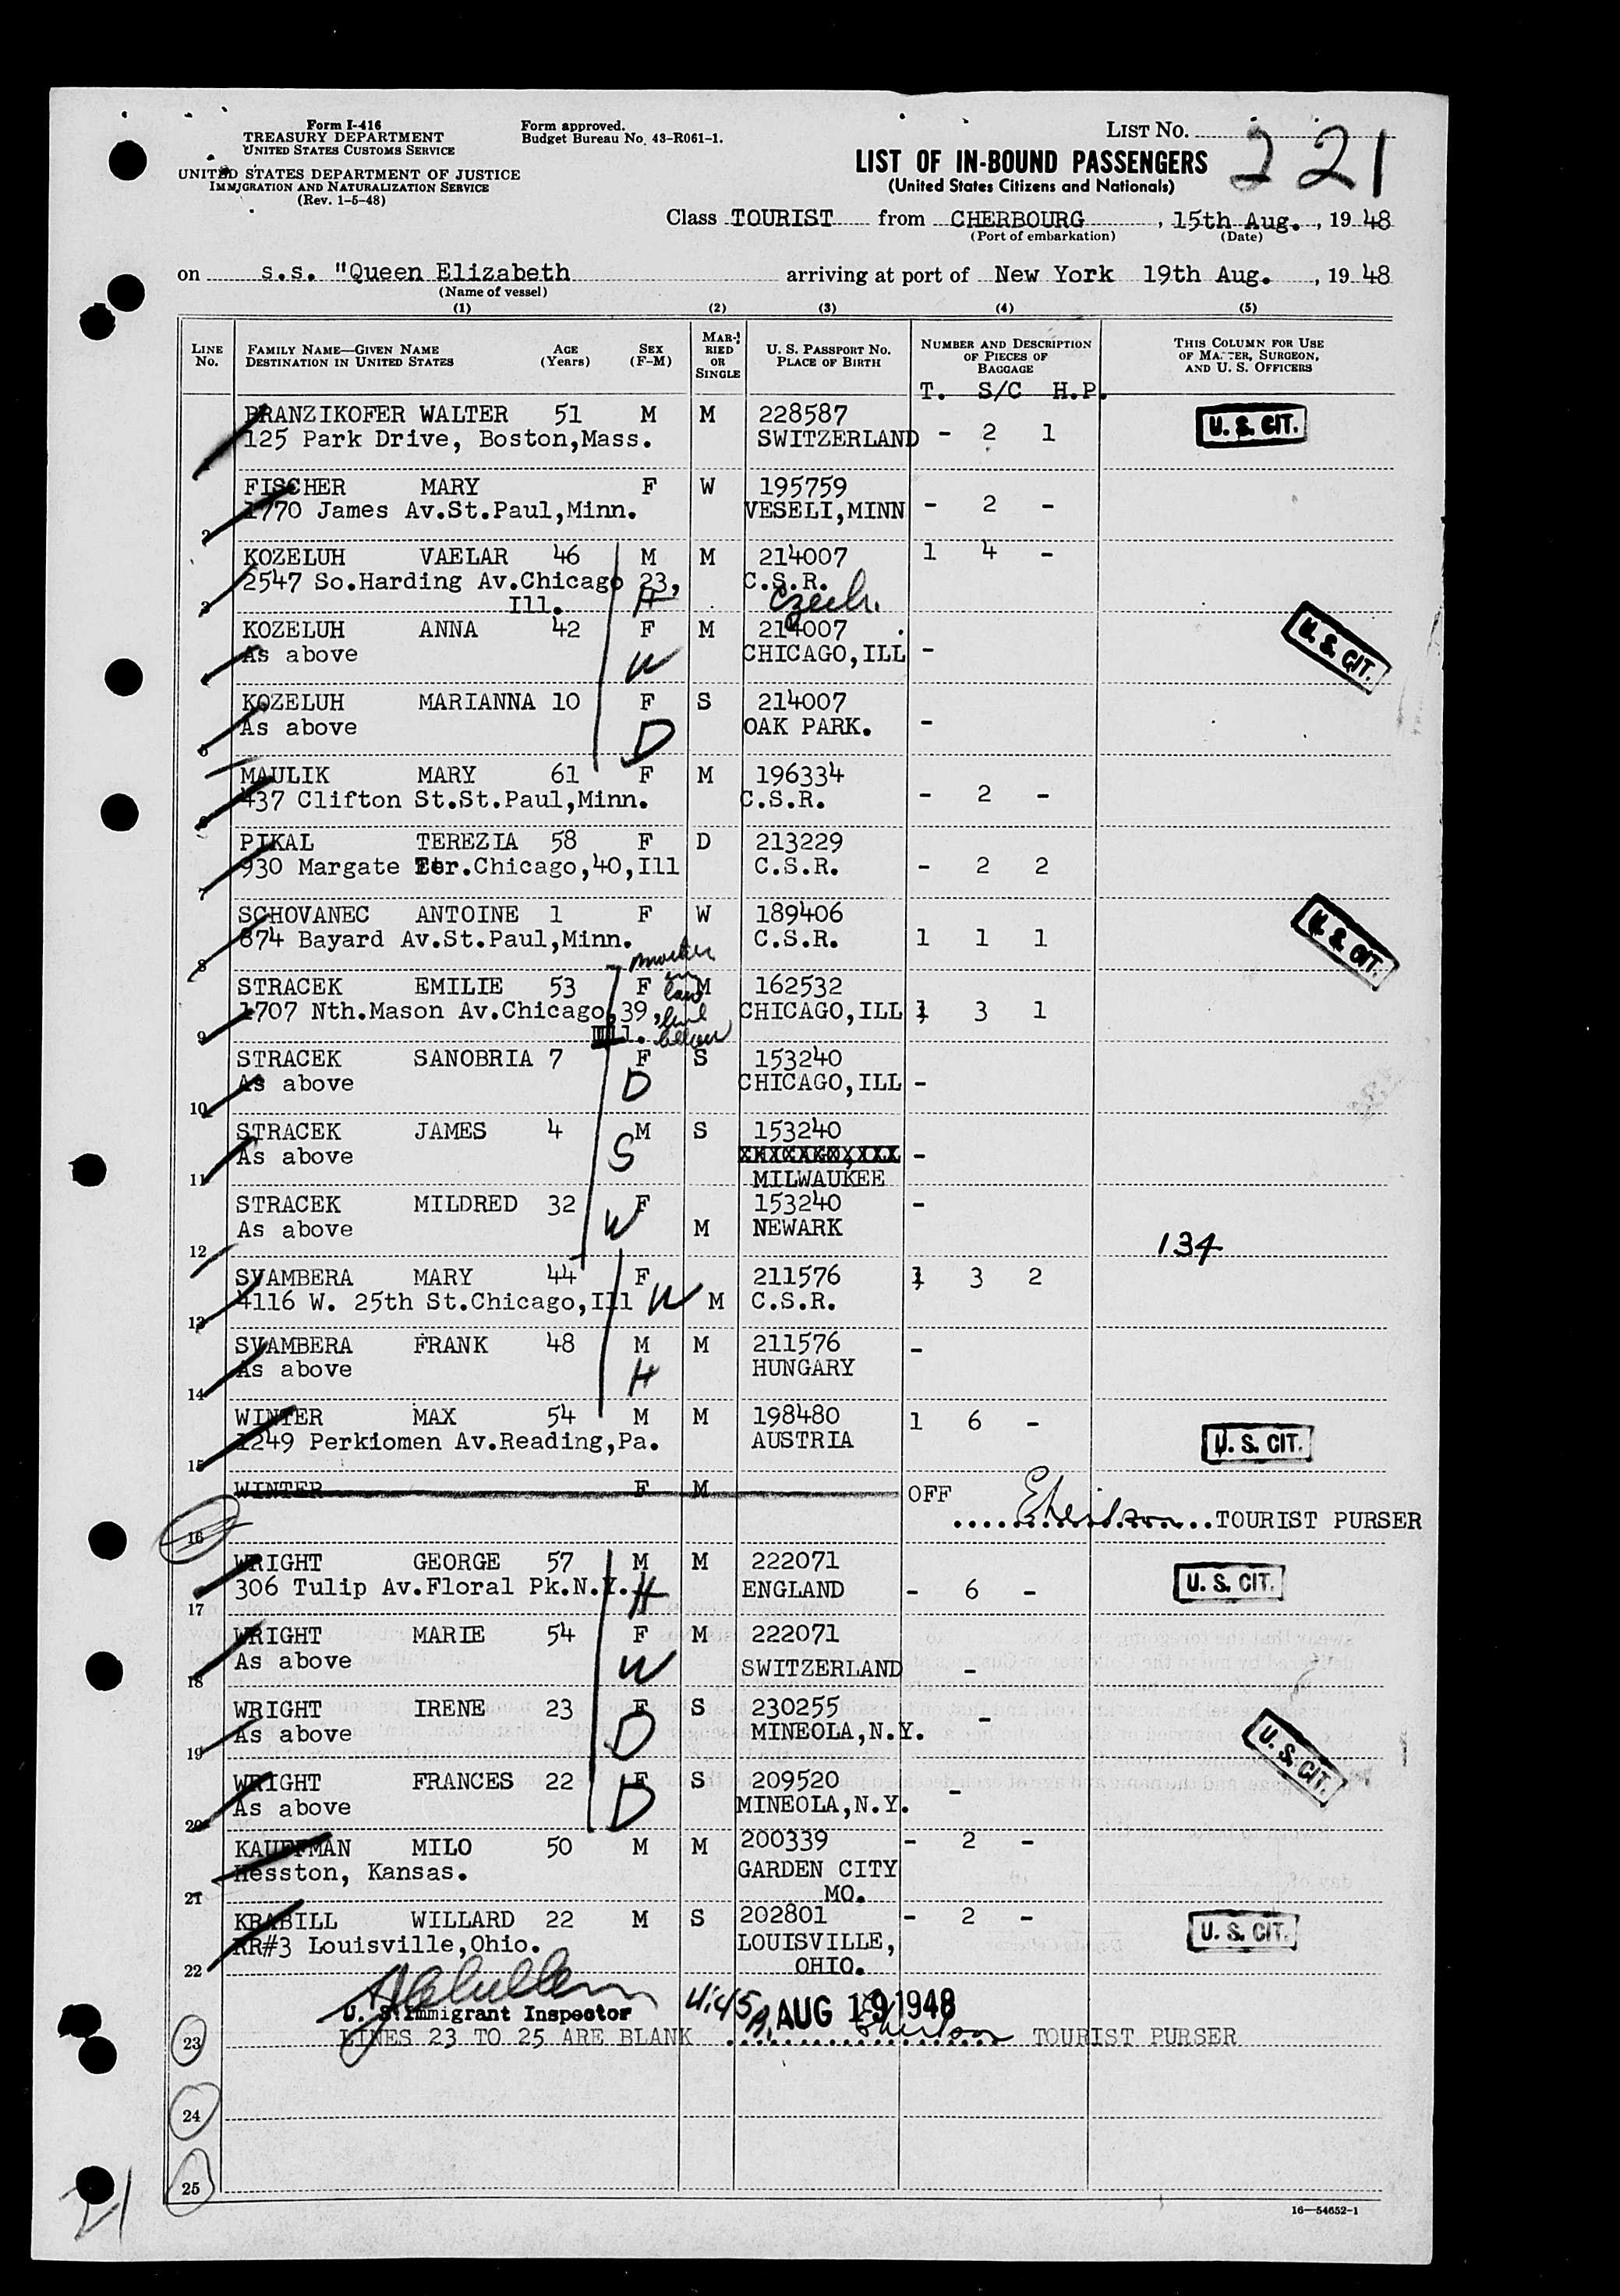 Form I-416
TREASURY DEPARTMENT
UNITED STATES CUSTOMS SERVICE
UNITED STATES DEPARTMENT OF JUSTICE
IMMIGRATION AND NATURALIZATION SERVICE
(Rev. 1-5-48)
Form approved.
Budget Bureau No. 43-R061-1.
LIST No. 221
LIST OF IN-BOUND PASSENGERS
(United States Citizens and Nationals)
Class TOURIST from CHERBOURG, 15th Aug., 19 48
(Port of embarkation) (Date)
on s.s. "Queen Elizabeth arriving at port of New York 19th Aug., 19 48
(Name of vessel)
(1) (2) (3) (4) (5)
LINE No. FAMILY NAME—GIVEN NAME DESTINATION IN UNITED STATES AGE (Years) SEX (F-M) MARRIED OR SINGLE U. S. PASSPORT No. PLACE OF BIRTH NUMBER AND DESCRIPTION OF PIECES OF BAGGAGE THIS COLUMN FOR USE OF MASTER, SURGEON, AND U. S. OFFICERS
T. S/C H.P.
BRANZIKOFER WALTER 51 M M 228587
125 Park Drive, Boston,Mass. SWITZERLAND - 2 1 U. S. CIT.
FISCHER MARY F W 195759
1770 James Av.St.Paul,Minn. VESELI,MINN - 2 -
2
KOZELUH VAELAR 46 M M 214007 1 4 -
2547 So.Harding Av.Chicago 23, C.S.R.
3 Ill. H Czech.
KOZELUH ANNA 42 F M 214007
As above W CHICAGO,ILL - U. S. CIT.
KOZELUH MARIANNA 10 F S 214007
As above D OAK PARK. -
MAULIK MARY 61 F M 196334
437 Clifton St.St.Paul,Minn. C.S.R. - 2 -
PIKAL TEREZIA 58 F D 213229
930 Margate Ter.Chicago,40,Ill C.S.R. - 2 2
7
SCHOVANEC ANTOINE 1 F W 189406
874 Bayard Av.St.Paul,Minn. C.S.R. 1 1 1 U. S. CIT.
8 mother in law
STRACEK EMILIE 53 F M 162532
1707 Nth.Mason Av.Chicago,39, CHICAGO,ILL 1 3 1
9 Ill.
STRACEK SANOBRIA 7 F S 153240
As above D CHICAGO,ILL -
10
STRACEK JAMES 4 M S 153240
As above S -
11 MILWAUKEE
STRACEK MILDRED 32 F 153240 -
As above W M NEWARK
12 134
SVAMBERA MARY 44 F 211576 1 3 2
4116 W. 25th St.Chicago,Ill W M C.S.R.
13
SVAMBERA FRANK 48 M M 211576 -
As above H HUNGARY
14
WINTER MAX 54 M M 198480 1 6 -
1249 Perkiomen Av.Reading,Pa. AUSTRIA U. S. CIT.
15
WINTER F M OFF
16 TOURIST PURSER
WRIGHT GEORGE 57 M M 222071
306 Tulip Av.Floral Pk.N.Y. H ENGLAND - 6 - U. S. CIT.
17
WRIGHT MARIE 54 F M 222071
As above W SWITZERLAND -
18
WRIGHT IRENE 23 F S 230255
As above D MINEOLA,N.Y. -
19 U. S. CIT.
WRIGHT FRANCES 22 F S 209520
As above D MINEOLA,N.Y. -
20
KAUFFMAN MILO 50 M M 200339 - 2 -
Hesston, Kansas. GARDEN CITY
21 MO.
KRABILL WILLARD 22 M S 202801 - 2 -
RR#3 Louisville,Ohio. LOUISVILLE, U. S. CIT.
22 OHIO.
U. S. Immigrant Inspector 4:45 P. AUG 19 1948
23 LINES 23 TO 25 ARE BLANK TOURIST PURSER
24
25
16—54652-1
21